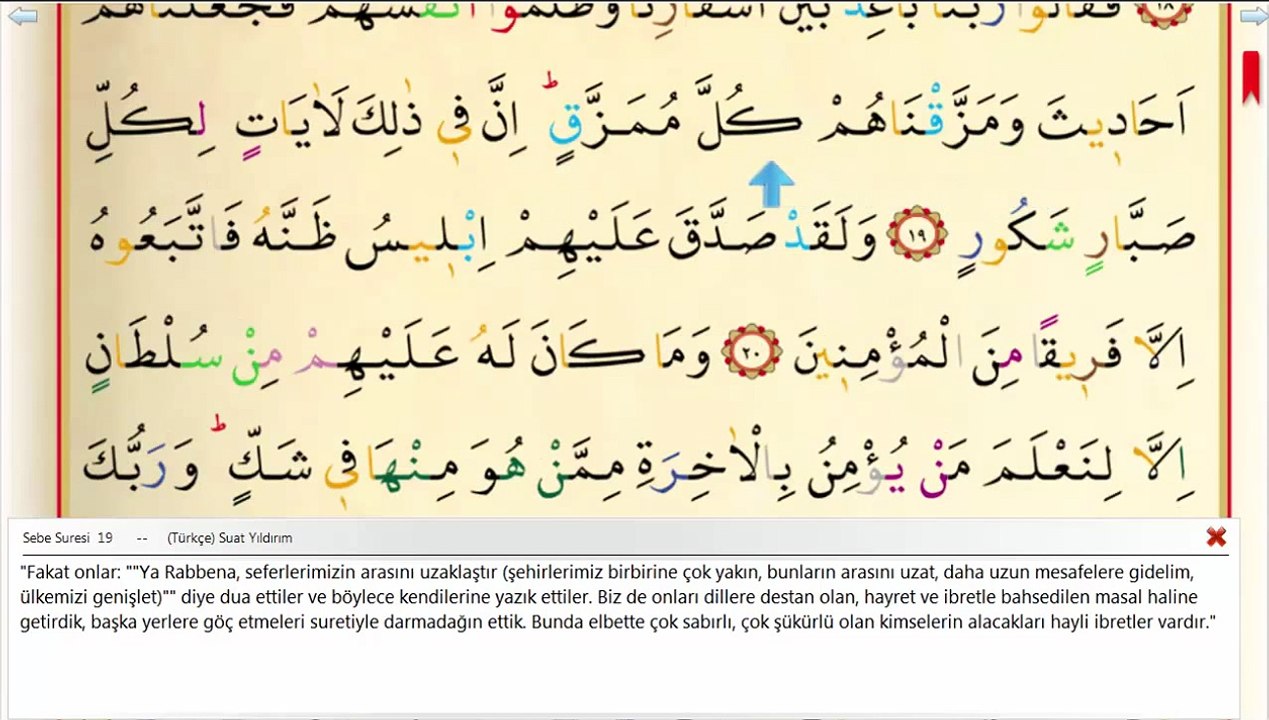 فَقَالُوا رَبَّنَا بَاعِدْ بَيْنَ اَسْفَارِنَا وَظَلَمُوا اَنْفُسَهُمْ فَجَعَلْنَاهُمْ ١٨
اَحَادٖيثَ وَمَزَّقْنَاهُمْ كُلَّ مُمَزَّقٍ ط اِنَّ فٖي ذٰلِكَ لَاٰيَاتٍ لِكُلِّ
صَبَّارٍ شَكُورٍ ١٩ وَلَقَدْ صَدَّقَ عَلَيْهِمْ اِبْلٖيسُ ظَنَّهُ فَاتَّبَعُوهُ
اِلَّا فَرٖيقًا مِنَ الْمُؤْمِنٖينَ ٢٠ وَمَا كَانَ لَهُ عَلَيْهِمْ مِنْ سُلْطَانٍ
اِلَّا لِنَعْلَمَ مَنْ يُؤْمِنُ بِالْاٰخِرَةِ مِمَّنْ هُوَ مِنْهَا فٖي شَكٍّ ط وَرَبُّكَ
Sebe Suresi 19 -- (Türkçe) Suat Yıldırım
"Fakat onlar: ""Ya Rabbena, seferlerimizin arasını uzaklaştır (şehirlerimiz birbirine çok yakın, bunların arasını uzat, daha uzun mesafelere gidelim,
ülkemizi genişlet)"" diye dua ettiler ve böylece kendilerine yazık ettiler. Biz de onları dillere destan olan, hayret ve ibretle bahsedilen masal haline
getirdik, başka yerlere göç etmeleri suretiyle darmadağın ettik. Bunda elbette çok sabırlı, çok şükürlü olan kimselerin alacakları hayli ibretler vardır."